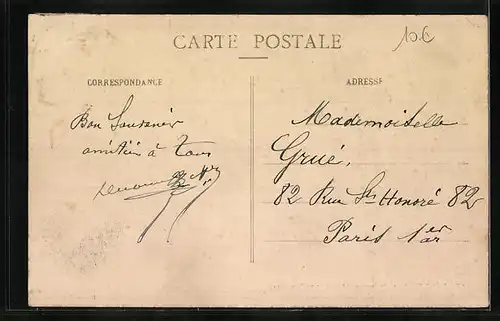 10€
CARTE POSTALE
CORRESPONDANCE
ADRESSE
Bon Souvenir
amitiés à tous
Mademoiselle
Grué,
82 Rue St Honoré 82
Paris 1er
ar